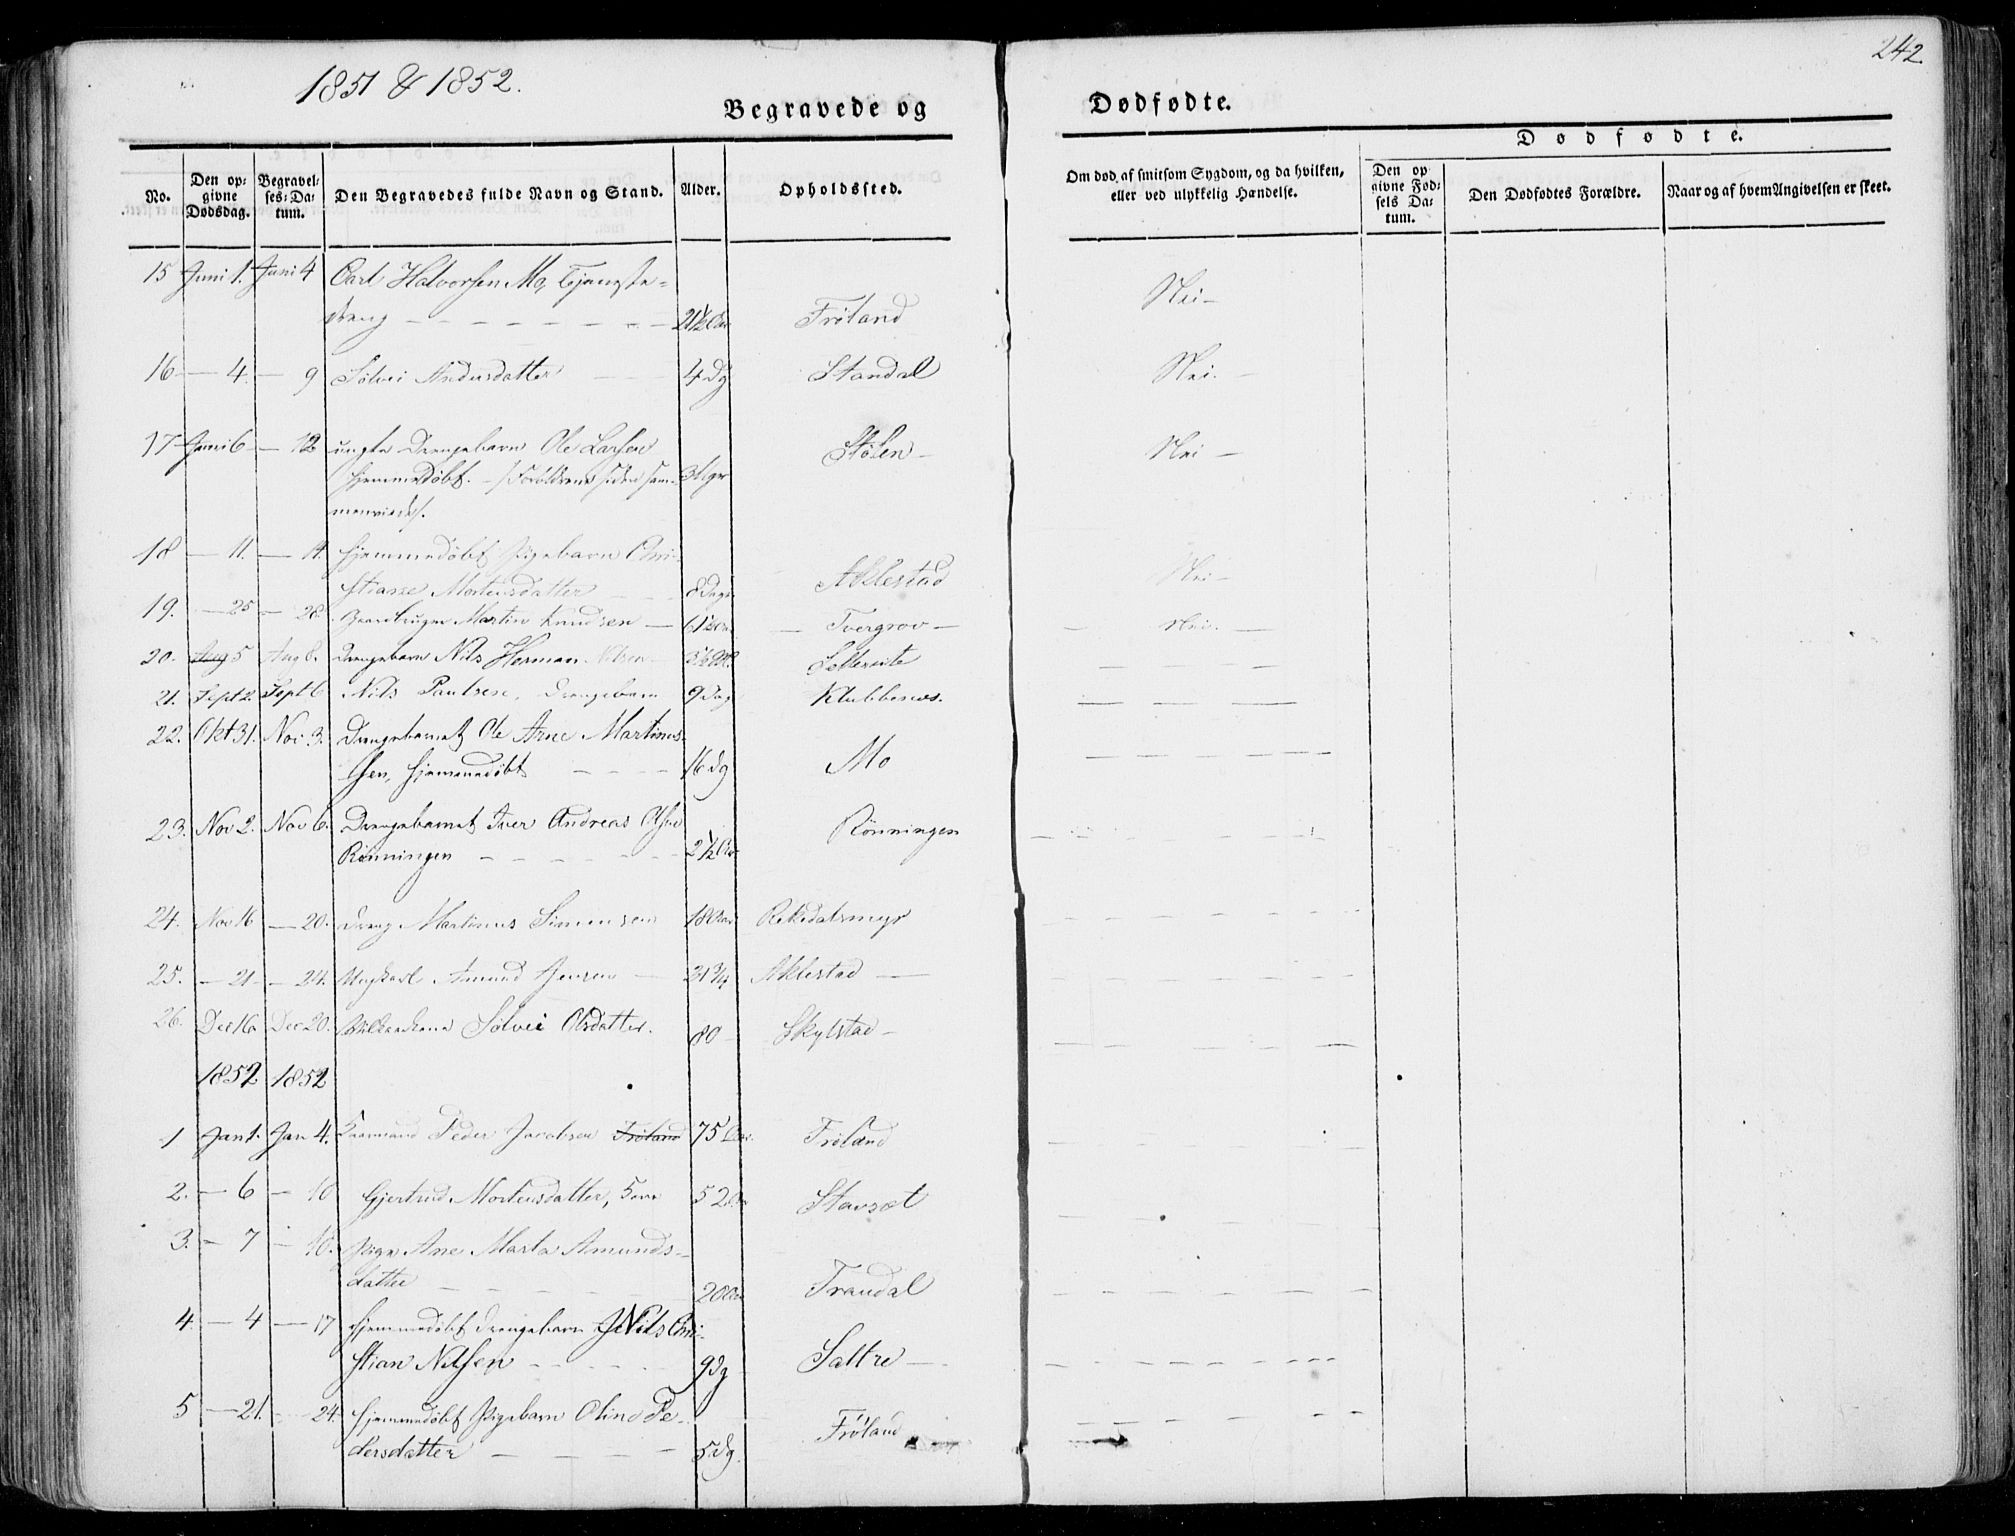 242.
1851 & 1852.
Begravede og Dødfødte.
Dødfødte.
No.
Den op-
givne
Dødsdag.
Begravel-
ses-Da-
tum.
Den Begravedes fulde Navn og Stand.
Alder.
Opholdssted.
Om død af smitsom Sygdom, og da hvilken,
eller ved ulykkelig Hændelse.
Den op
givne Fød-
sels Da-
tum.
Den Dødfødtes Forældre.
Naar og af hvem Angivelsen er skeet.
15 Juni 1. Juni 4 Carl Halvorsen Mo, Tjeneste-
dreng - - - 21½ Aar Frøland Nei -
16 - 4. - 9 Sølvei Andersdatter 4 Dg Standal Nei. -
17 Juni 6 - 12 uægte Drengebarn Ole Larsen Stølen - Nei -
hjemmedøbt. - /: Forældrene siden sam-
menviede /.
18 - 11. - 14. hjemmedøbt Pigebarn Chri-
stiane Mortensdatter 8 Dage Aklestad Nei -
19. - 25 - 28. Gaardbruger Martin Knudsen - - Tvergrov - - Nei. -
20. Aug 5 Aug 8. Drengebarn Nils Herman Nilsen - - -
21. Sept 2. Sept 6 Nils Paulsen, Drengebarn 9 Dag - - -
22. Okt 31. Nov 3. Drengebarnet Ole Arne Martinus-
sen, hjemmedøbt - - - 16 dg Mo - - -
23. Nov 2. Nov 6. Drengebarnet Iver Andreas Olsen
Rönningen - - - 2½ Aar Rönningen - - -
24. Nov 16 - 20. Dreng Martinus Simensen 18 Aar Rekkedalsmyr - - -
25. - 21 - 24. Ungkarl Amund Jensen - 21¾ Aklestad - - - -
26. Dec 16 Dec 20. Sølvei Olsdatter. 80 - Skylstad - - - -
1852 1852
1 Jan 1. Jan 4. Kaarmand Peder Jacobsen Frøland 75 Aar. Frøland
2. - 6 - 10 Gjertrud Mortensdatter, 52 Aar Stavsæt - - -
3. - 7 - 10. Pige Ane Marta Amunds-
datter - - - 20 Aar Trandal - - -
4. - 4 - 17 hjemmedøbt Drengebarn Nils Chri-
stian Nilsen - - - 9 Dg Sættre - - - -
5 - 21. - 24. hjemmedøbt Pigebarn Oline Pe-
dersdatter - - - 5 Dg. Frøland - - -